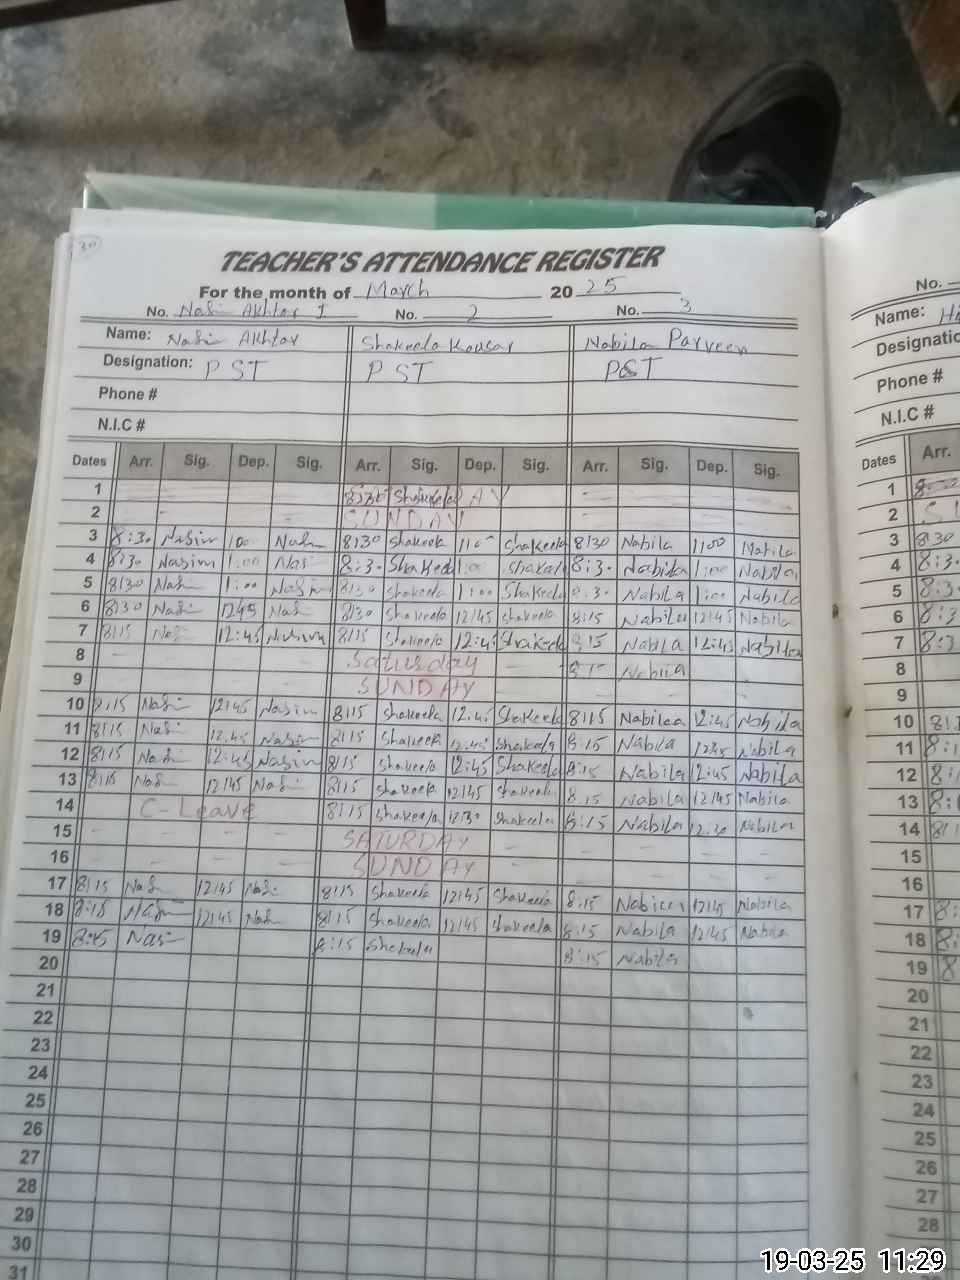 30
TEACHER'S ATTENDANCE REGISTER
For the month of March 2025
No. Nasim Akhtar 1 No. 2 No. 3
Name: Nasim Akhtar Shakeela Kousar Nabila Parveen
Designation: PST PST PST
Phone #
N.I.C #
Dates Arr. Sig. Dep. Sig. Arr. Sig. Dep. Sig. Arr. Sig. Dep. Sig.
1 8:30 Shakeela
2 SUNDAY
3 8:30 Nasim 1:00 Nasim 8:30 Shakeela 1:00 Shakeela 8:30 Nabila 1:00 Nabila
4 8:30 Nasim 1:00 Nasim 8:30 Shakeela 1:00 Shakeela 8:30 Nabila 1:00 Nabila
5 8:30 Nasim 1:00 Nasim 8:30 Shakeela 1:00 Shakeela 8:30 Nabila 1:00 Nabila
6 8:30 Nasim 12:45 Nasim 8:30 Shakeela 12:45 Shakeela 8:15 Nabila 12:45 Nabila
7 8:15 Nasim 12:45 Nasim 8:15 Shakeela 12:45 Shakeela 8:15 Nabila 12:45 Nabila
8 Saturday 8:15 Nabila
9 SUNDAY
10 8:15 Nasim 12:45 Nasim 8:15 Shakeela 12:45 Shakeela 8:15 Nabila 12:45 Nabila
11 8:15 Nasim 12:45 Nasim 8:15 Shakeela 12:45 Shakeela 8:15 Nabila 12:45 Nabila
12 8:15 Nasim 12:45 Nasim 8:15 Shakeela 12:45 Shakeela 8:15 Nabila 12:45 Nabila
13 8:15 Nasim 12:45 Nasim 8:15 Shakeela 12:45 Shakeela 8:15 Nabila 12:45 Nabila
14 C-Leave 8:15 Shakeela 12:30 Shakeela 8:15 Nabila 12:30 Nabila
15 SATURDAY
16 SUNDAY
17 8:15 Nasim 12:45 Nasim 8:15 Shakeela 12:45 Shakeela 8:15 Nabila 12:45 Nabila
18 8:15 Nasim 12:45 Nasim 8:15 Shakeela 12:45 Shakeela 8:15 Nabila 12:45 Nabila
19 8:15 Nasim 8:15 Shakeela 8:15 Nabila
20
21
22
23
24
25
26
27
28
29
30
31
No.
Name:
Designatio
Phone #
N.I.C #
Dates Arr.
1
2
3 8:30
4 8:3
5 8:3
6 8:3
7 8:3
8
9
10
11
12
13
14
15
16
17
18
19
20
21
22
23
24
25
26
27
28
19-03-25 11:29